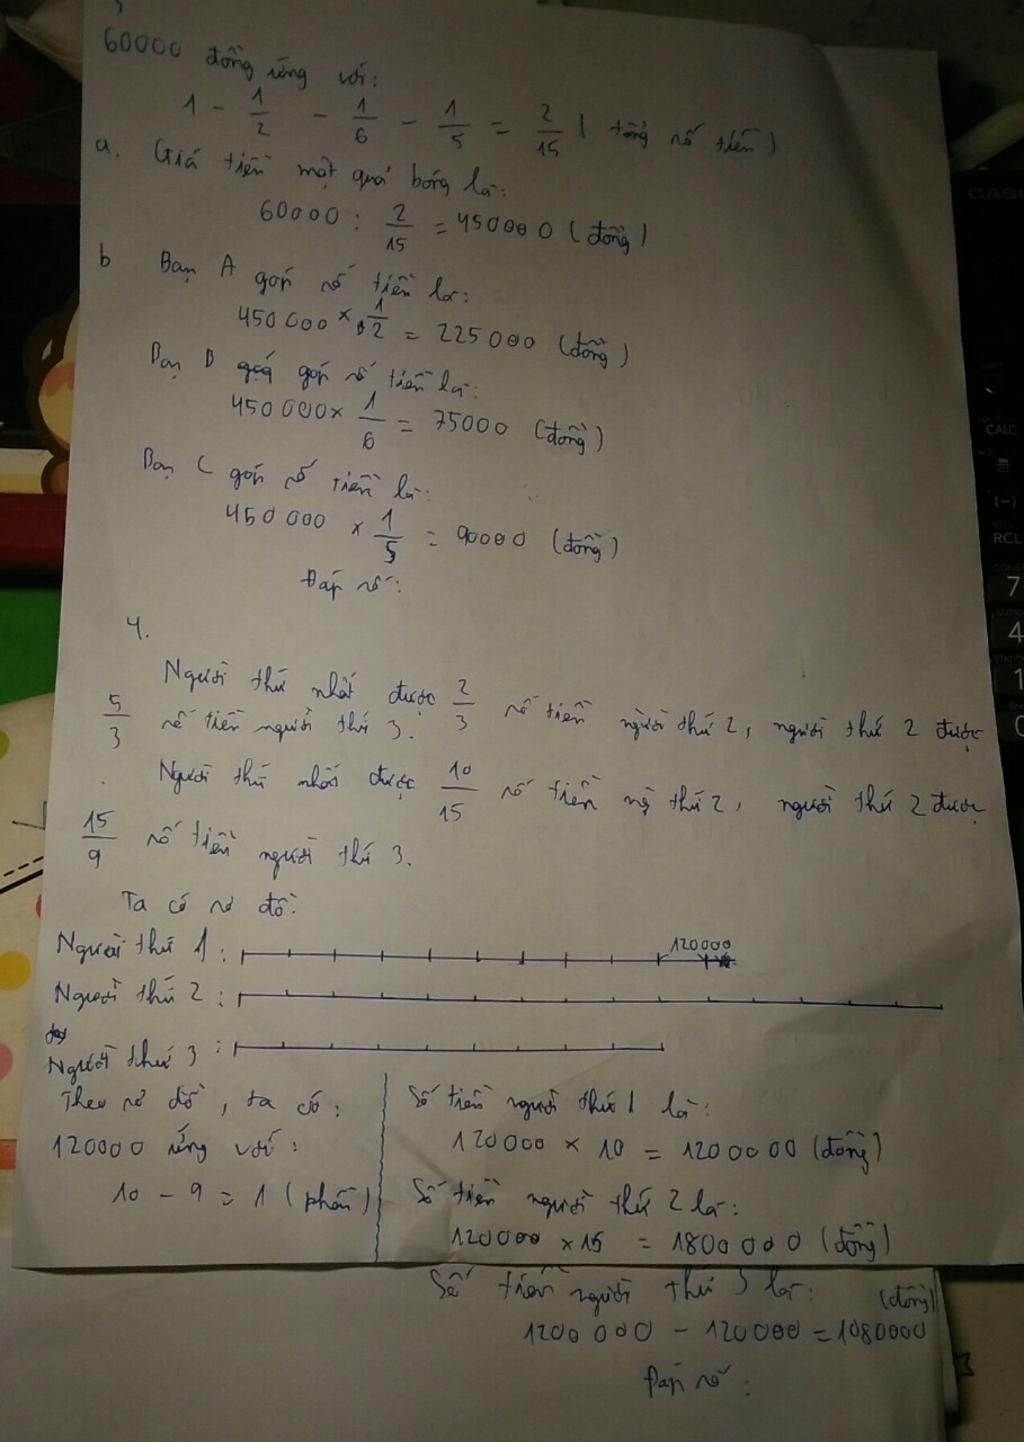 60000 đồng ứng với:
1 - 1/2 - 1/6 - 1/5 = 2/15 ( tổng số tiền )
a. Giá tiền một quả bóng là:
60000 : 2/15 = 450000 (đồng)
b Bạn A góp số tiền là:
450 000 × 1/2 = 225000 (đồng)
Bạn B góp số tiền là:
450 000 × 1/6 = 75000 (đồng)
Bạn C góp số tiền là:
450 000 × 1/5 = 90000 (đồng)
Đáp số:
4.
Người thứ nhất được 2/3 số tiền người thứ 2, người thứ 2 được
5/3 số tiền người thứ 3.
Người thứ nhất được 10/15 số tiền ng thứ 2, người thứ 2 được
15/9 số tiền người thứ 3.
Ta có sơ đồ:
120000
Người thứ 1 :
Người thứ 2 :
Người thứ 3 :
Theo sơ đồ, ta có:
120000 ứng với:
10 - 9 = 1 (phần)
Số tiền người thứ 1 là:
120000 × 10 = 1200000 (đồng)
Số tiền người thứ 2 là:
120000 × 15 = 1800000 (đồng)
Số tiền người thứ 3 là:
1200000 - 120000 = 1080000 (đồng)
Đáp số :
CASIO
CALC
(-)
RCL
7
4
1
0